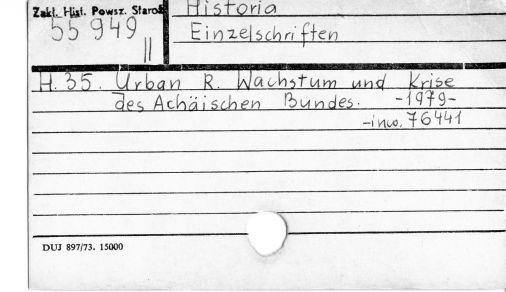 Zakł. Hist. Powsz. Staroż
55 949
II
Historia
Einzelschriften
H. 35. Urban R. Wachstum und Krise
des Achäischen Bundes. -1979-
-inw. 76441
DUJ 897/73. 15000